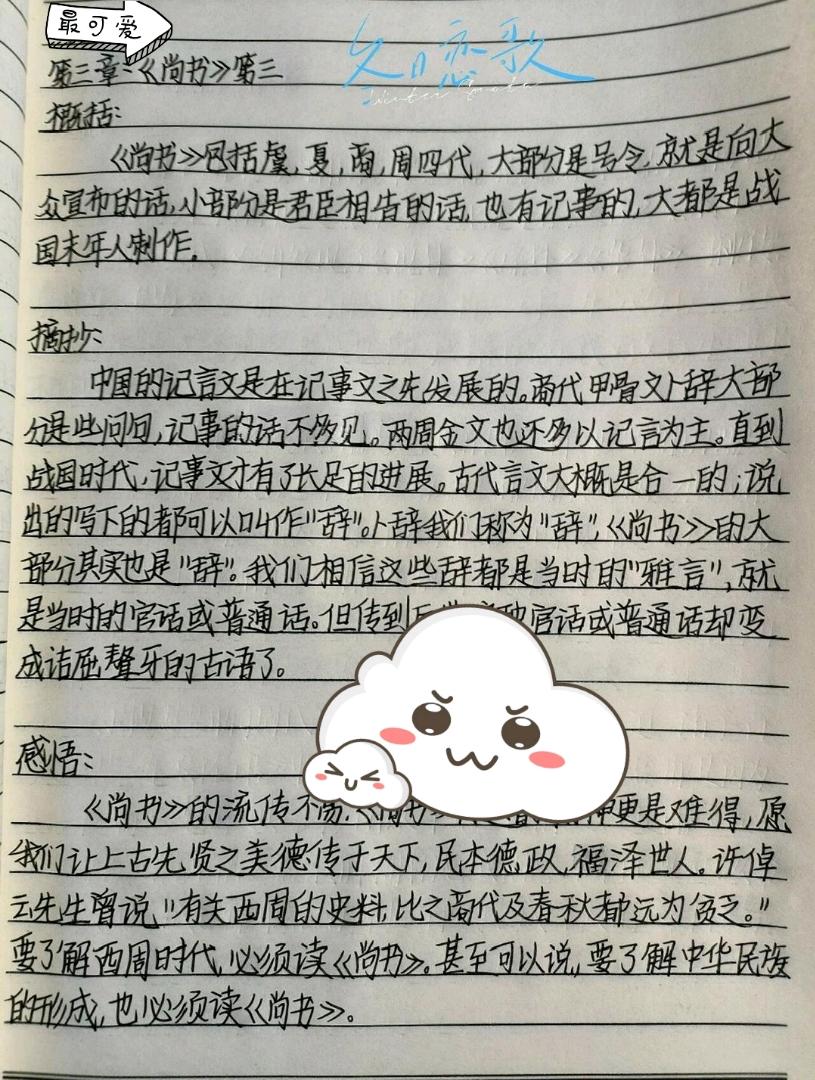 最可爱
第三章:《尚书》第三
冬日恋歌
概括:
《尚书》包括虞,夏,商,周四代,大部分是号令,就是向大
众宣布的话,小部分是君臣相告的话,也有记事的,大都是战
国末年人制作.
摘抄:
中国的记言文是在记事文之先发展的。商代甲骨文卜辞大部
分是些问句,记事的话不多见。两周金文也还多以记言为主。直到
战国时代,记事文才有了长足的进展。古代言文大概是合一的,说
出的写下的都可以叫作"辞"。卜辞我们称为"辞",《尚书》的大
部分其实也是"辞"。我们相信这些辞都是当时的"雅言",就
是当时的官话或普通话。但传到 官话或普通话却变
成诘屈聱牙的古语了。
感悟:
《尚书》的流传不易,《尚书》 更是难得,愿
我们让上古先贤之美德传于天下,民本德政,福泽世人。许倬
云先生曾说"有关西周的史料,比之商代及春秋都远为贫乏。"
要了解西周时代,必须读《尚书》。甚至可以说,要了解中华民族
的形成,也必须读《尚书》。